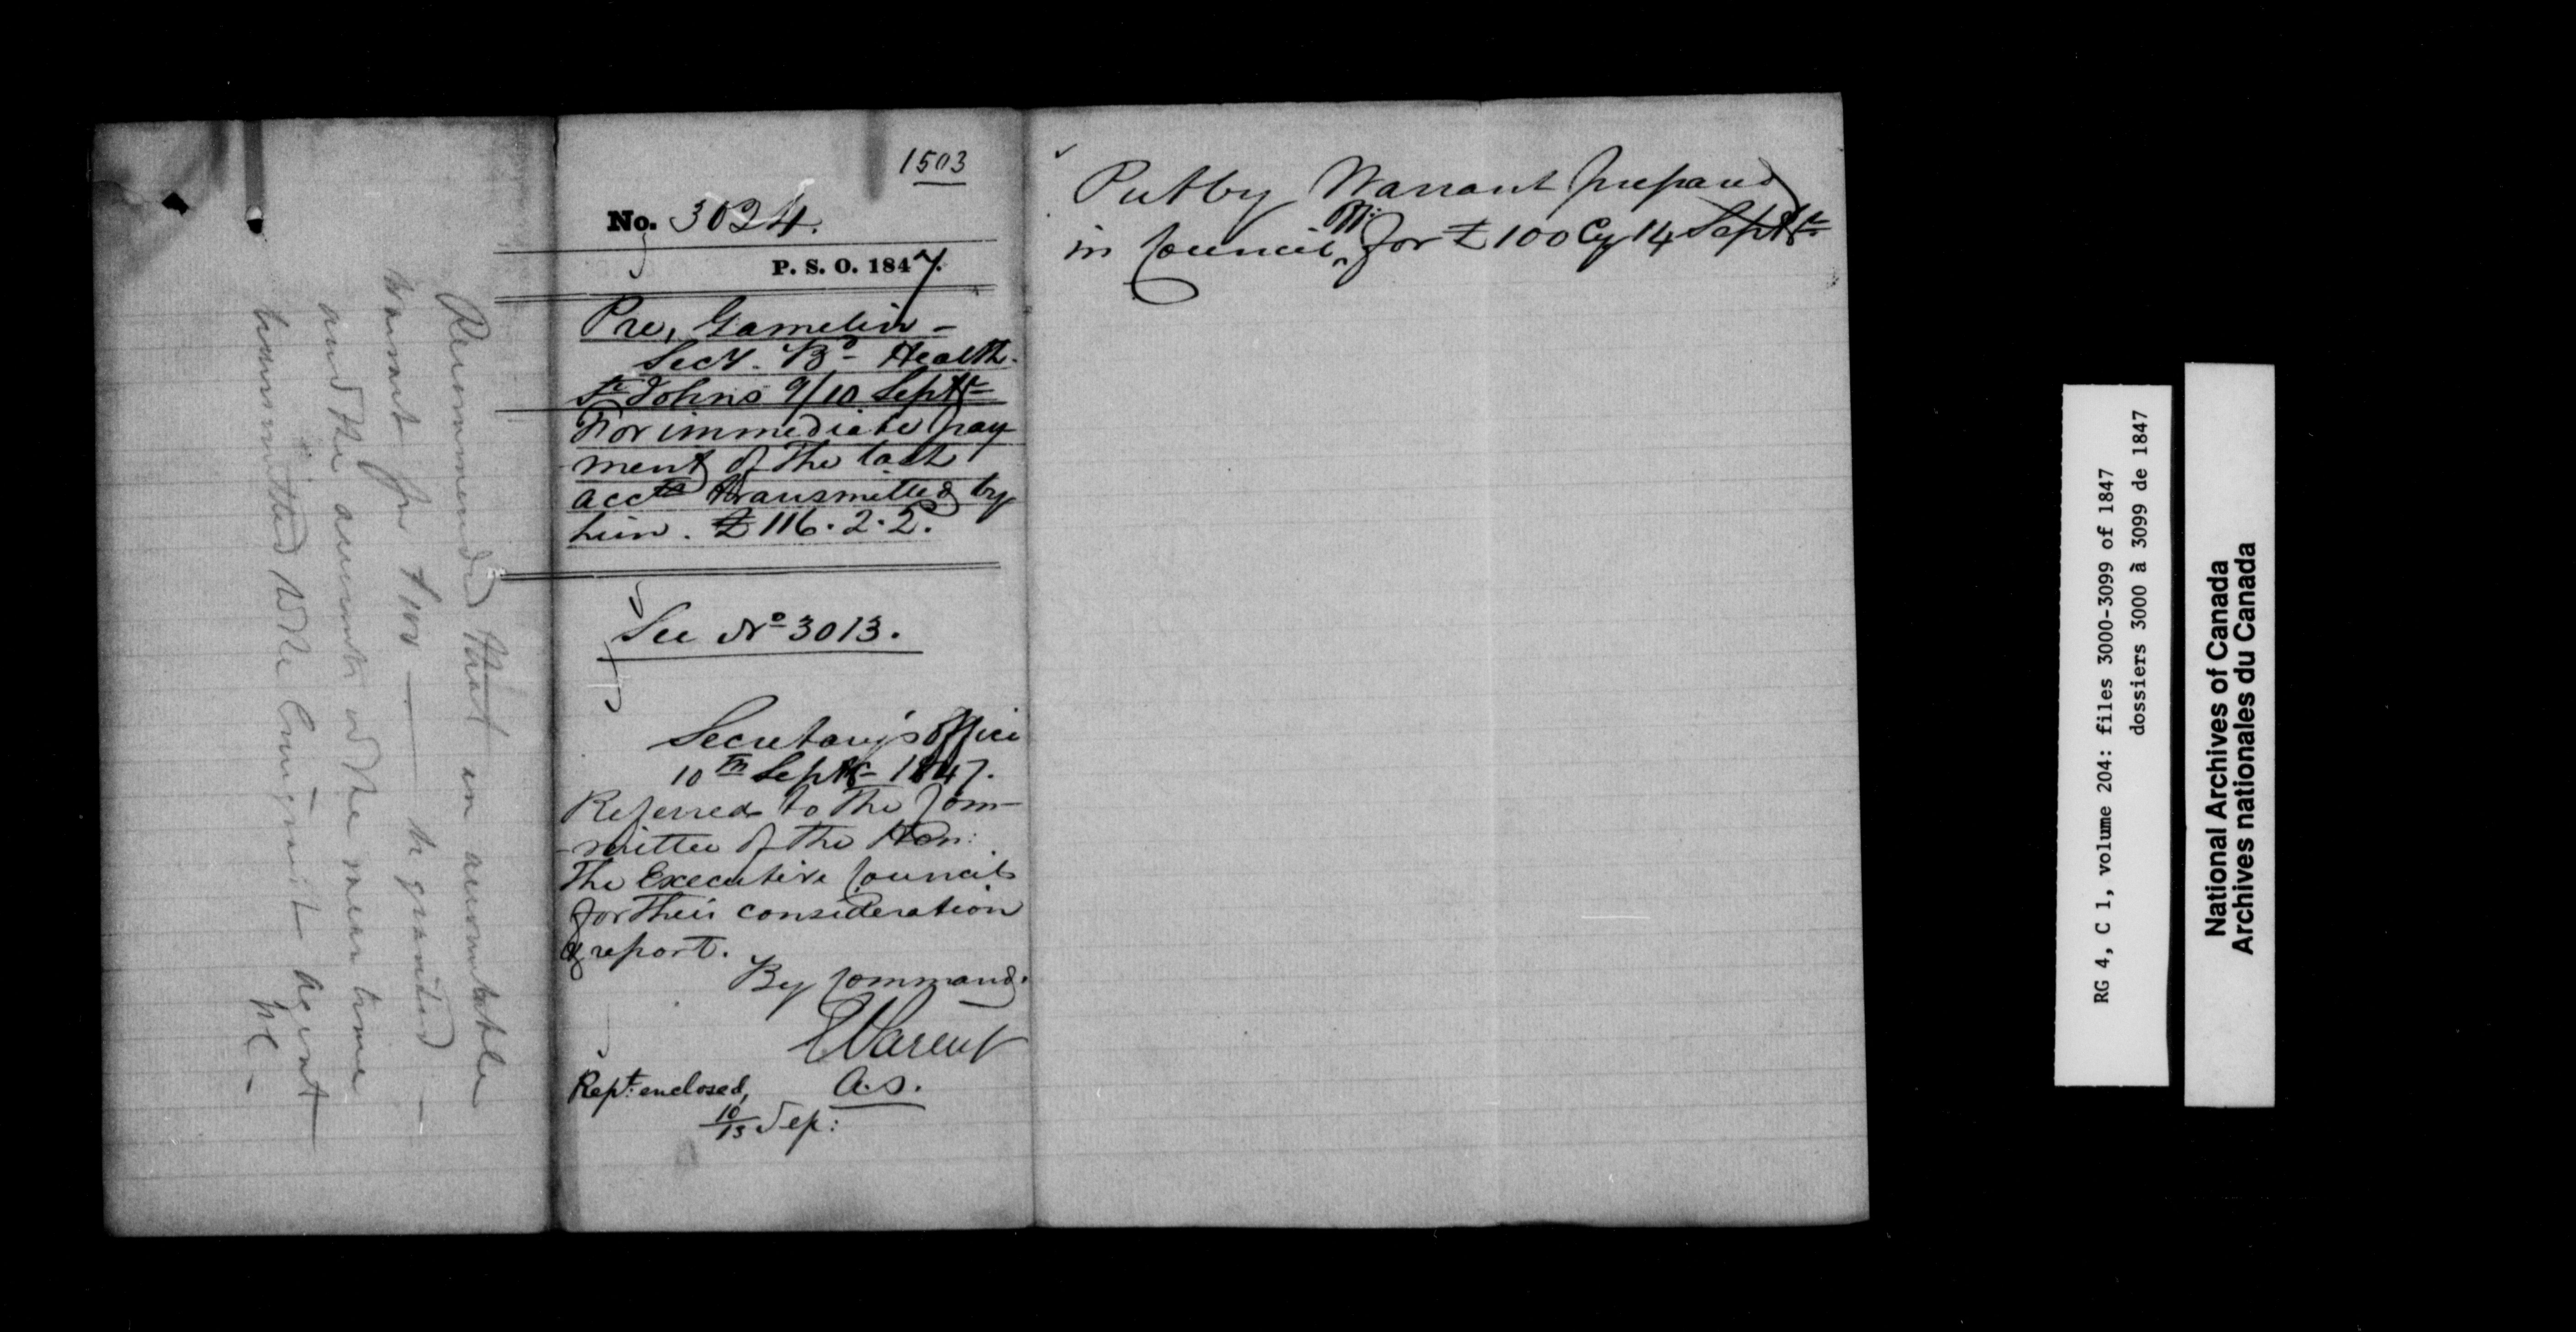 Recommended that an accountable
warrant for £100 — be granted —
and the accounts in the mean time
transmitted to the Emigrant Agent
1503
No. 3024.
P. S. O. 1847.
Pre, Gamelin -
Secy. Bd Health.
St Johns 9/10 Septr
For immediate pay
ment of the last
accts transmitted by
him. £116.2.2.
See No 3013.
Secretary's Office
10th Septr 1847.
Referred to the Com-
-mittee of the Hon:
The Executive Council
for their consideration
& report.
By Command.
E Parent
A.S.
Rept: enclosed,
10/13 Sep:
Put by Warrant prepared
in Council Off: for £100 Cy 14 Septr
RG 4, C 1, volume 204: files 3000-3099 of 1847
dossiers 3000 à 3099 de 1847
National Archives of Canada
Archives nationales du Canada